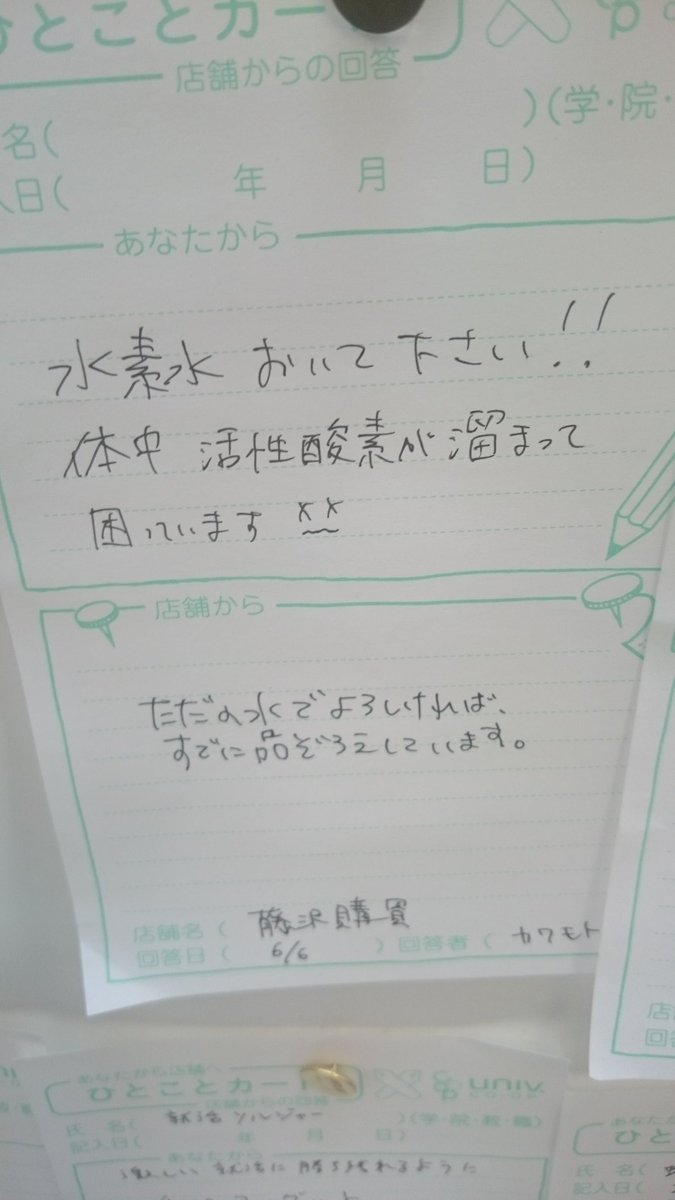 ひとことカー
店舗からの回答
名( )(学・院・
入日( 年 月 日)
あなたから
水素水 おいて 下さい!!
体中 活性酸素が溜まって
困っています
店舗から
ただの水でよろしければ、
すでに品ぞろえしています。
店舗名( 藤沢購買
回答日( 6/6 )回答者( カワモト
あなたから店舗へ
ひとことカー
univ
店舗からの回答
氏 名( 就活ソルジャー )(学・院・教・職)
記入日( 年 月 日)
あなたから
激しい就活に勝ち残れるように
あなたから
ひとこ
氏 名(
記入日(
店
回